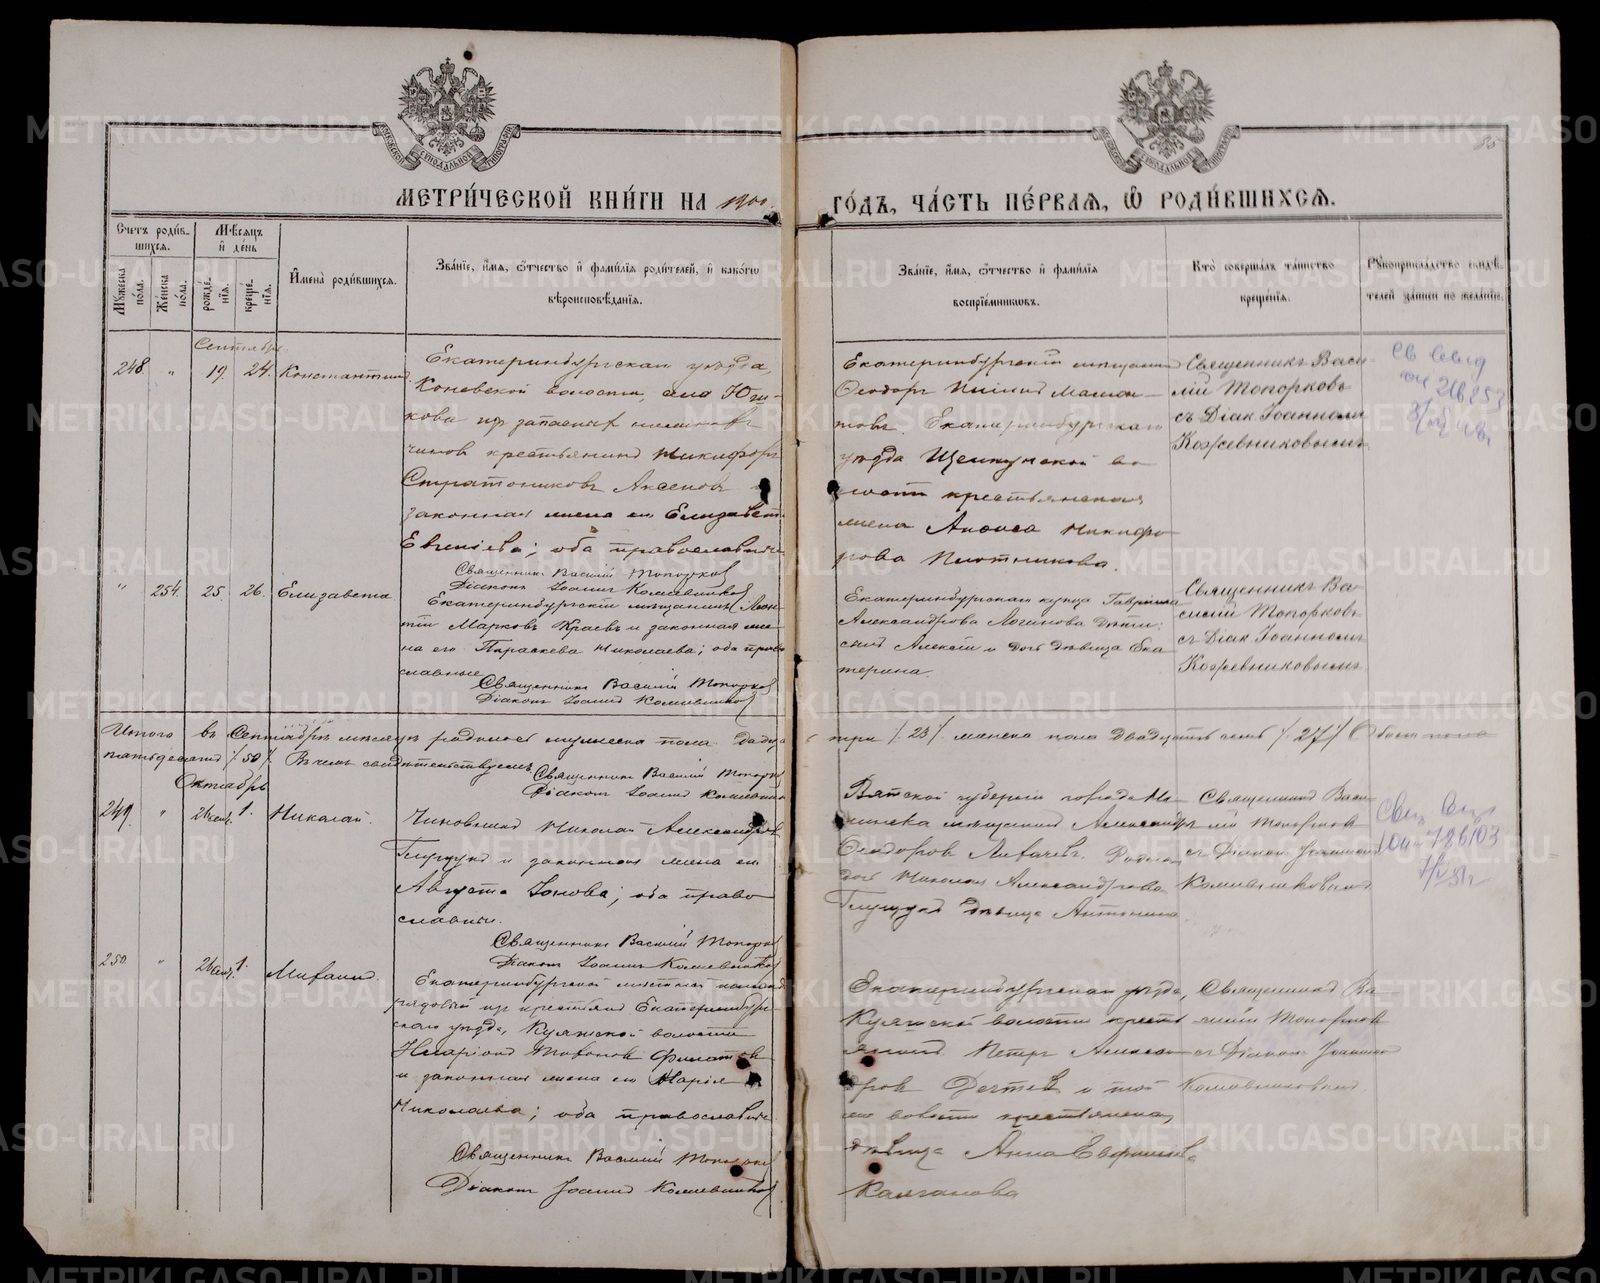 МЕТРИ́ЧЕСКОЙ КНИ́ГИ НА 1900
ГО́ДЪ, ЧА́СТЬ ПЕ́РВАЯ, Ѡ РОДИ́ВШИХСЯ.
85
Счетъ роди́в-
шихся.
Мѣсяцъ
и де́нь
Мꙋжеска по́ла.
Же́нска по́ла.
рожде́-
нїя.
креще́-
нїя.
И҆мена̀ роди́вшихся.
Зва́нїе, и҆мя, ѻ҆́тчество и҆ фами́лїѧ роди́телей, и҆ како́гѡ
вѣроисповѣ́данїѧ.
Зва́нїе, и҆мя, ѻ҆́тчество и҆ фами́лїѧ
воспрїе́мникѡвъ.
Кто̀ соверша́лъ та́инство
креще́нїѧ.
Рꙋкоприкла́дство свидѣ́-
телей за́писи по жела́нїю.
Сентябрь
248 " 19. 24. Константинъ
Екатеринбургскаго уѣзда,
Коневской волости, села Юш-
кова изъ запасныхъ нижнихъ
чиновъ крестьянинъ Никифоръ
Стратониковъ Аксеновъ и
законная жена его Елизавета
Евгеніева; оба православные
Священникъ Василій Топорковъ
Діаконъ Іоаннъ Кожевниковъ
Екатеринбургскій мѣщанинъ
Ѳеодоръ
Екатеринбургскаго
уѣзда Щелкунской во-
лости крестьянская
жена Анѳиса Никифо-
рова Плотникова.
Священникъ Васи-
лій Топорковъ
съ Діак. Іоанномъ
Кожевниковымъ
" 254. 25. 26. Елизавета
Екатеринбургскій мѣщанинъ Леон-
тій Марковъ Краевъ и законная же-
на его Параскева Николаева; оба право-
славные
Священникъ Василій Топорковъ
Діаконъ Іоаннъ Кожевниковъ
Екатеринбургскаго купца Гавріила
Александрова Логинова дѣти:
сынъ Алексій и дочь дѣвица Ека-
терина.
Священникъ Ва-
силій Топорковъ
съ Діак. Іоанномъ
Кожевниковымъ
Итого въ Сентябрѣ мѣсяцѣ родилось мужеска пола двадцать
три /23/ женска пола двадцать семь /27/ Обоего пола
пятьдесятъ /50/. Въ чемъ свидѣтельствуемъ
Священникъ Василій Топорковъ
Діаконъ Іоаннъ Кожевниковъ
Октябрь
249. " 26 сент. 1. Николай.
Чиновникъ Николай Александровъ
и законная жена его
Августа Іонова; оба право-
славные.
Священникъ Василій Топорковъ
Діаконъ Іоаннъ Кожевниковъ
Вятской губерніи города
мѣщанинъ Александръ
Ѳеодоровъ Лихачевъ.
дочь Николая Александрова
дѣвица Антонина.
Священникъ Васи-
лій Топорковъ
съ Діакон. Іоанномъ
Кожевниковымъ
250. " 26 сент. 1. Михаилъ.
Екатеринбургской мѣстной команды
рядовый изъ крестьянъ Екатеринбург-
скаго уѣзда, Куяшской волости
Иларіонъ Филатовъ
и законная жена его Марія
Николаева; оба православные.
Священникъ Василій Топорковъ
Діаконъ Іоаннъ Кожевниковъ
Екатеринбургскаго уѣзда,
Куяшской волости кресть-
янинъ Петръ Алексан-
дровъ и той
же волости крестьянская
дѣвица Анна
Калганова
Священникъ Ва-
силій Топорковъ
съ Діакон. Іоанномъ
Кожевниковымъ